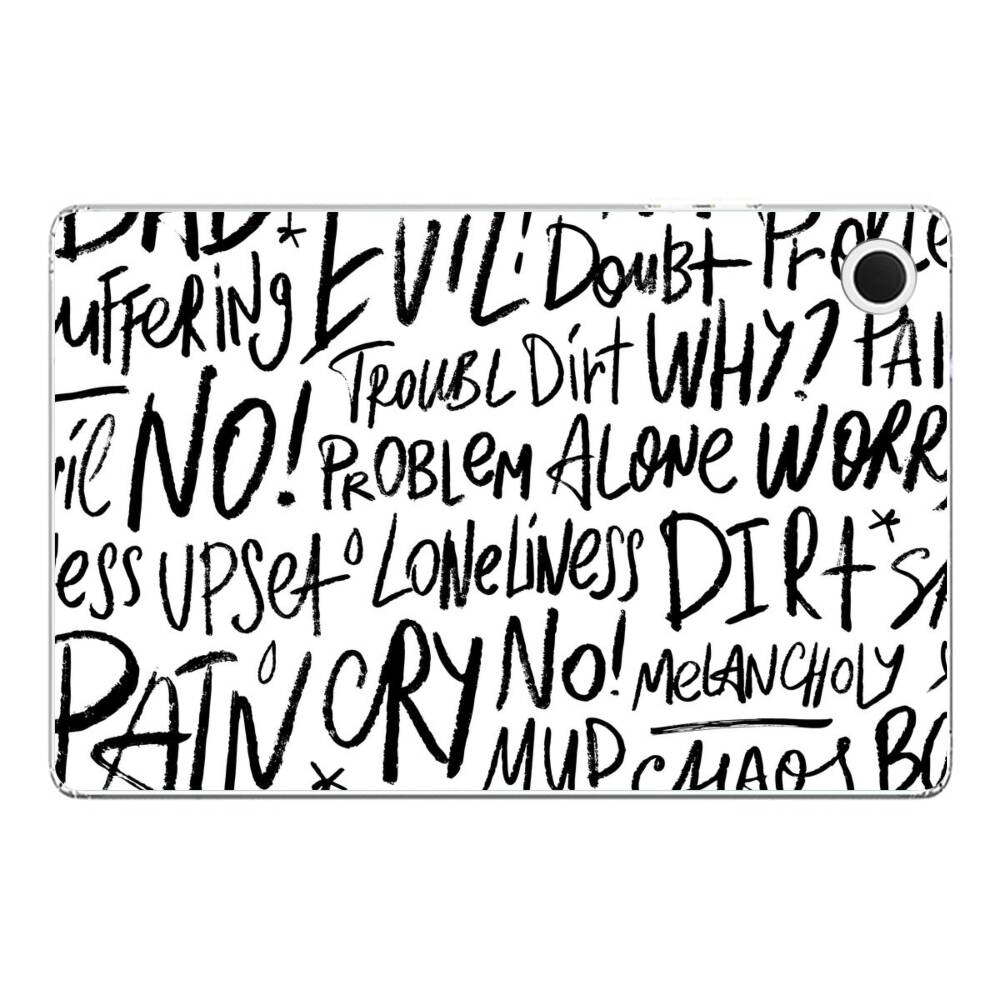 BAD* EVIL! Proble
uffering Doubt
TROUBL Dirt WHY? PAI
vil NO! PROBLEM ALONE WORR
ess UPSET LONELINESS DIRT* SA
PAIN CRY NO! MELANCHOLY S
* MUD CHAOS BO